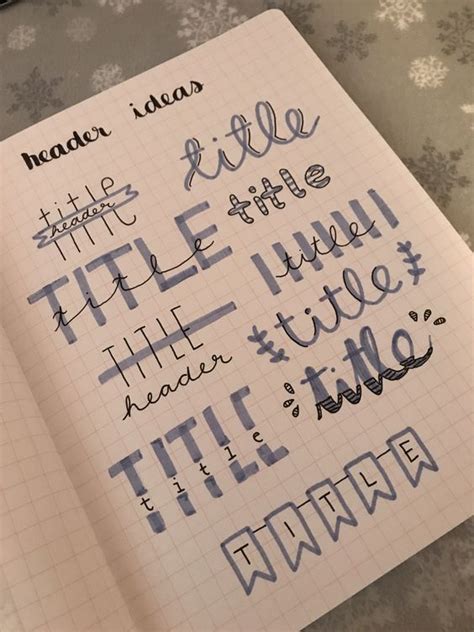 header ideas
title
header
title
title
TITLE
title
title
TITLE
header
title
TITLE
title
title
TITLE